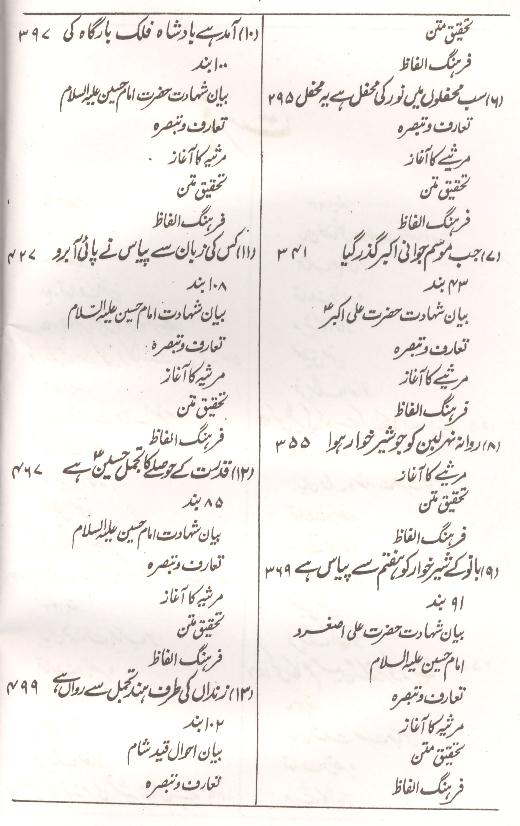 تحقیق متن
فرہنگ الفاظ
(۶) سب محفلوں میں نور کی محفل ہے یہ محفل ۲۹۵
تعارف و تبصرہ
مرثیے کا آغاز
تحقیق متن
فرہنگ الفاظ
(۷) جب موسم جوانی اکبر گذر گیا ۳۴۱
۴۳ بند
بیان شہادت حضرت علی اکبرؑ
تعارف و تبصرہ
مرثیے کا آغاز
فرہنگ الفاظ
(۸) روانہ نہر لبن کو جو شیر خوار ہوا ۳۵۵
مرثیے کا آغاز
تحقیق متن
فرہنگ الفاظ
(۹) بانو کے شیر خوار کو ہفتم سے پیاس ہے ۳۶۹
۹۱ بند
بیان شہادت حضرت علی اصغر و
امام حسین علیہ السلام
تعارف و تبصرہ
مرثیہ کا آغاز
تحقیق متن
فرہنگ الفاظ
(۱۰) آمد ہے بادشاہ فلک بارگاہ کی ۳۹۷
۱۰۰ بند
بیان شہادت حضرت امام حسین علیہ السلام
تعارف و تبصرہ
مرثیہ کا آغاز
تحقیق متن
فرہنگ الفاظ
(۱۱) کس کی زبان سے پیاس نے پائی آبرو ۴۲۷
۱۰۸ بند
بیان شہادت امام حسین علیہ السّلام
تعارف و تبصرہ
مرثیہ کا آغاز
تحقیق متن
فرہنگ الفاظ
(۱۲) قدرت کے حوصلے کا تجمل حسینؑ ہے ۴۶۷
۸۵ بند
بیان شہادت امام حسین علیہ السلام
تعارف و تبصرہ
مرثیہ کا آغاز
تحقیق متن
فرہنگ الفاظ
(۱۳) زنداں کی طرف ہند تجمل سے رواں ہے ۴۹۹
۱۰۲ بند
بیان احوال قید شام
تعارف و تبصرہ